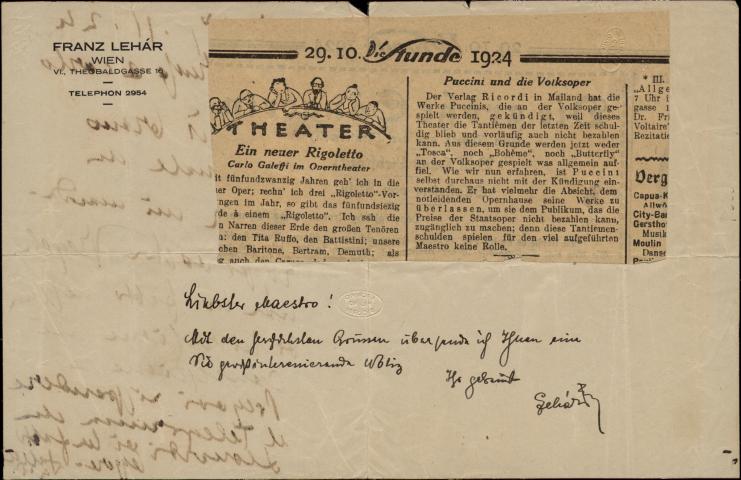 FRANZ LEHÁR
WIEN
VI., THEOBALDGASSE 16
TELEPHON 2954
29.10. Die Stunde 1924
THEATER
Ein neuer Rigoletto
Carlo Galeffi im Operntheater
it fünfundzwanzig Jahren geh' ich in die
er Oper; rechn' ich drei „Rigoletto"-Vor-
ngen im Jahr, so gibt das fünfundsiezig
de à einem „Rigoletto". Ich sah die
n Narren dieser Erde den großen Tenören
n: den Tita Ruffo, den Battistini; unsere
chen Baritone, Bertram, Demuth; als
Puccini und die Volksoper
Der Verlag Ricordi in Mailand hat die
Werke Puccinis, die an der Volksoper ge-
spielt werden, gekündigt, weil dieses
Theater die Tantiemen der letzten Zeit schul-
dig blieb und vorläufig auch nicht bezahlen
kann. Aus diesem Grunde werden jetzt weder
„Tosca", noch „Bohème", noch „Butterfly"
an der Volksoper gespielt was allgemein auf-
fiel. Wie wir nun erfahren, ist Puccini
selbst durchaus nicht mit der Kündigung ein-
verstanden. Er hat vielmehr die Absicht, dem
notleidenden Opernhause seine Werke zu
überlassen, um sie dem Publikum, das die
Preise der Staatsoper nicht bezahlen kann,
zugänglich zu machen; denn diese Tantiemen-
schulden spielen für den viel aufgeführten
Maestro keine Rolle.
* III.
„Allge
7 Uhr i
gasse 1
Dr. Fri
Voltaire'
Rezitatio
Verg
Capua-K
Allwö
City-Bar
Gersthof
Musik
Moulin
Dans
Pavillon
Liebster Maestro!
Mit den herzlichsten Grüssen übersende ich Ihnen eine
Sie gewiß interessierende Notiz
Ihr
Lehár